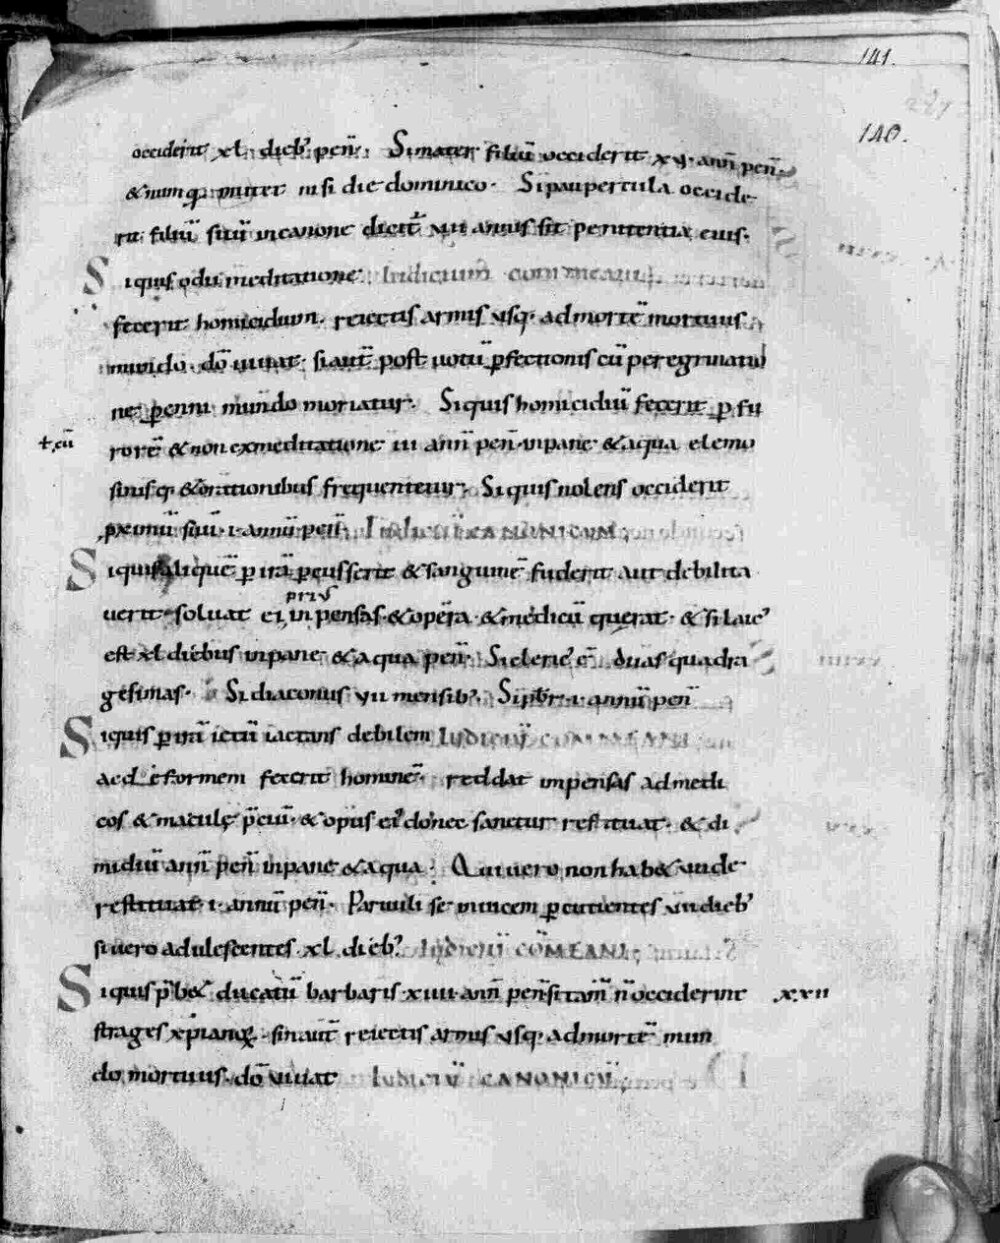 141.
140.
occiderit xl. dieb; peñ. Si mater filiū occiderit xv. anñ peñ
& numq; mutet nisi die dominico. Si paupercula occide
rit filiū suū in canone dicit vii annis sit penitentia eius.
Siquis odii meditatione Iudicium commeani
fecerit homicidium. relictis armis usq; ad mortē mortuus
mundo. dō uiuat. si aut post uotū pfectionis cū peregrinatio
ne perenni mundo moriatur. Siquis homicidiū fecerit p fu
+ cū
rorē & non ex meditatione iii anñ peñ in pane & aqua elemo
sinisq; & orationibus frequentetur. Siquis nolens occiderit
pximū suū. i. annū peñ. Iudiciū CANONICUM
Siquis aliquē p irā pcusserit & sanguinē fuderit aut debilita
prius
uerit soluat ei inpensas & opera & medicū querat & si laic'
est xl diebus in pane & aqua peñ Si cleric' ē duas quadra
gesimas. Si diaconus vii mensib; Si pbr i. annū peñ
Siquis p irā ictū iactans debilem IUDICIŪ COMMEANI
ac deformem fecerit hominē reddat inpensas ad medi
cos & maculę pciū & opus ei' donec sanetur restituat & di
midiū anñ peñ in pane & aqua. Qui uero non hab& unde
restituat i. annū peñ. Paruuli se inuicem pcutientes vii dieb;
si uero adulescentes. xl. dieb; IUDICIŪ COMEANI
Siquis pb& ducatū barbaris xiiii anñ peñ si tam ñ occiderint xxvii
strages xpianoꝝ. sin aut relictis armis usq; ad mortē mun
do mortuus. dō uiuat IUDICIŪ CANONICŪ